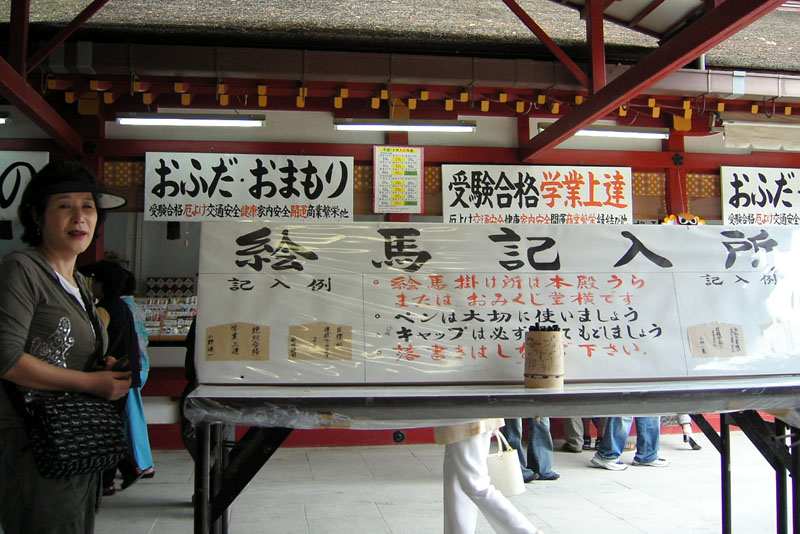 の
おふだ・おまもり
受験合格 厄よけ 交通安全 健康 家内安全 開運 商業繁栄 他
受験合格 学業上達
厄よけ 交通安全 健康 家内安全 開運 商業繁栄 縁結び 他
おふだ・
受験合格 厄よけ 交通
絵馬記入所
記入例
絶対合格
学業上達
。絵馬掛け所は本殿うら
または、おみくじ堂横です
。ペンは大切に使いましょう
キャップは必ず てもどしましょう
。落書きはし 下さい.
記入例